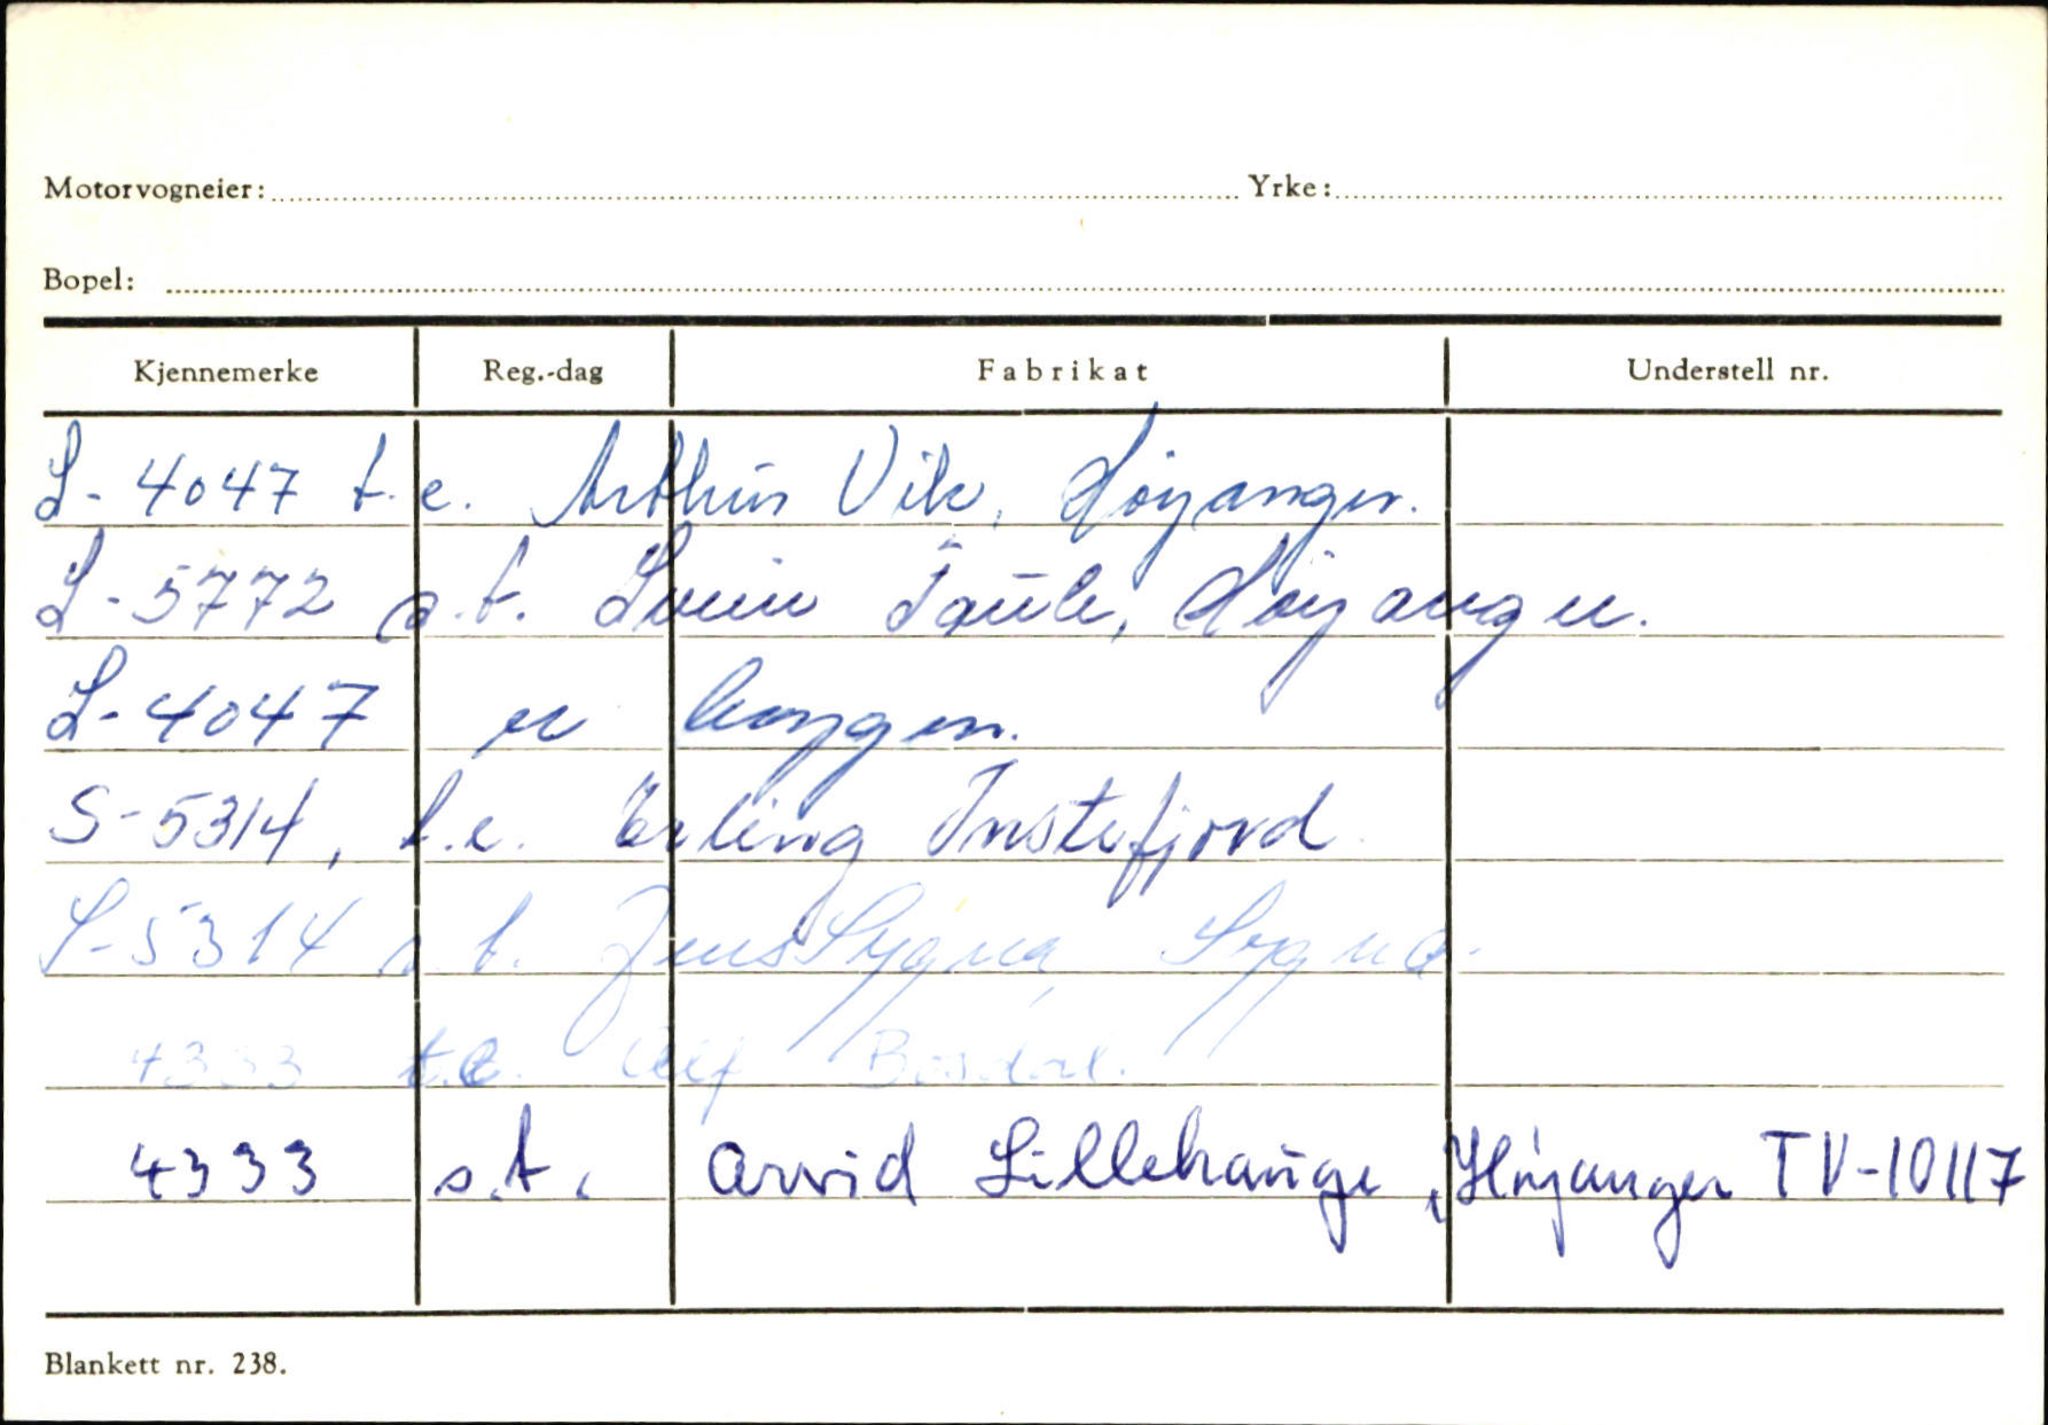 Motorvogneier: Yrke:
Bopel:
Kjennemerke Reg.-dag Fabrikat Understell nr.
S-4047 t.e. Arthur Vik, Høyanger.
S-5772 s.t. Taule, Høyanger.
S-4047 er
S-5314, t.e. Erling Instefjord
S-5314 s.t. Jens Sygna, Sygna.
4333 t.e. Alf Bosdal.
4333 s.t. Arvid Lillehauge, Høyanger TV-10117
Blankett nr. 238.